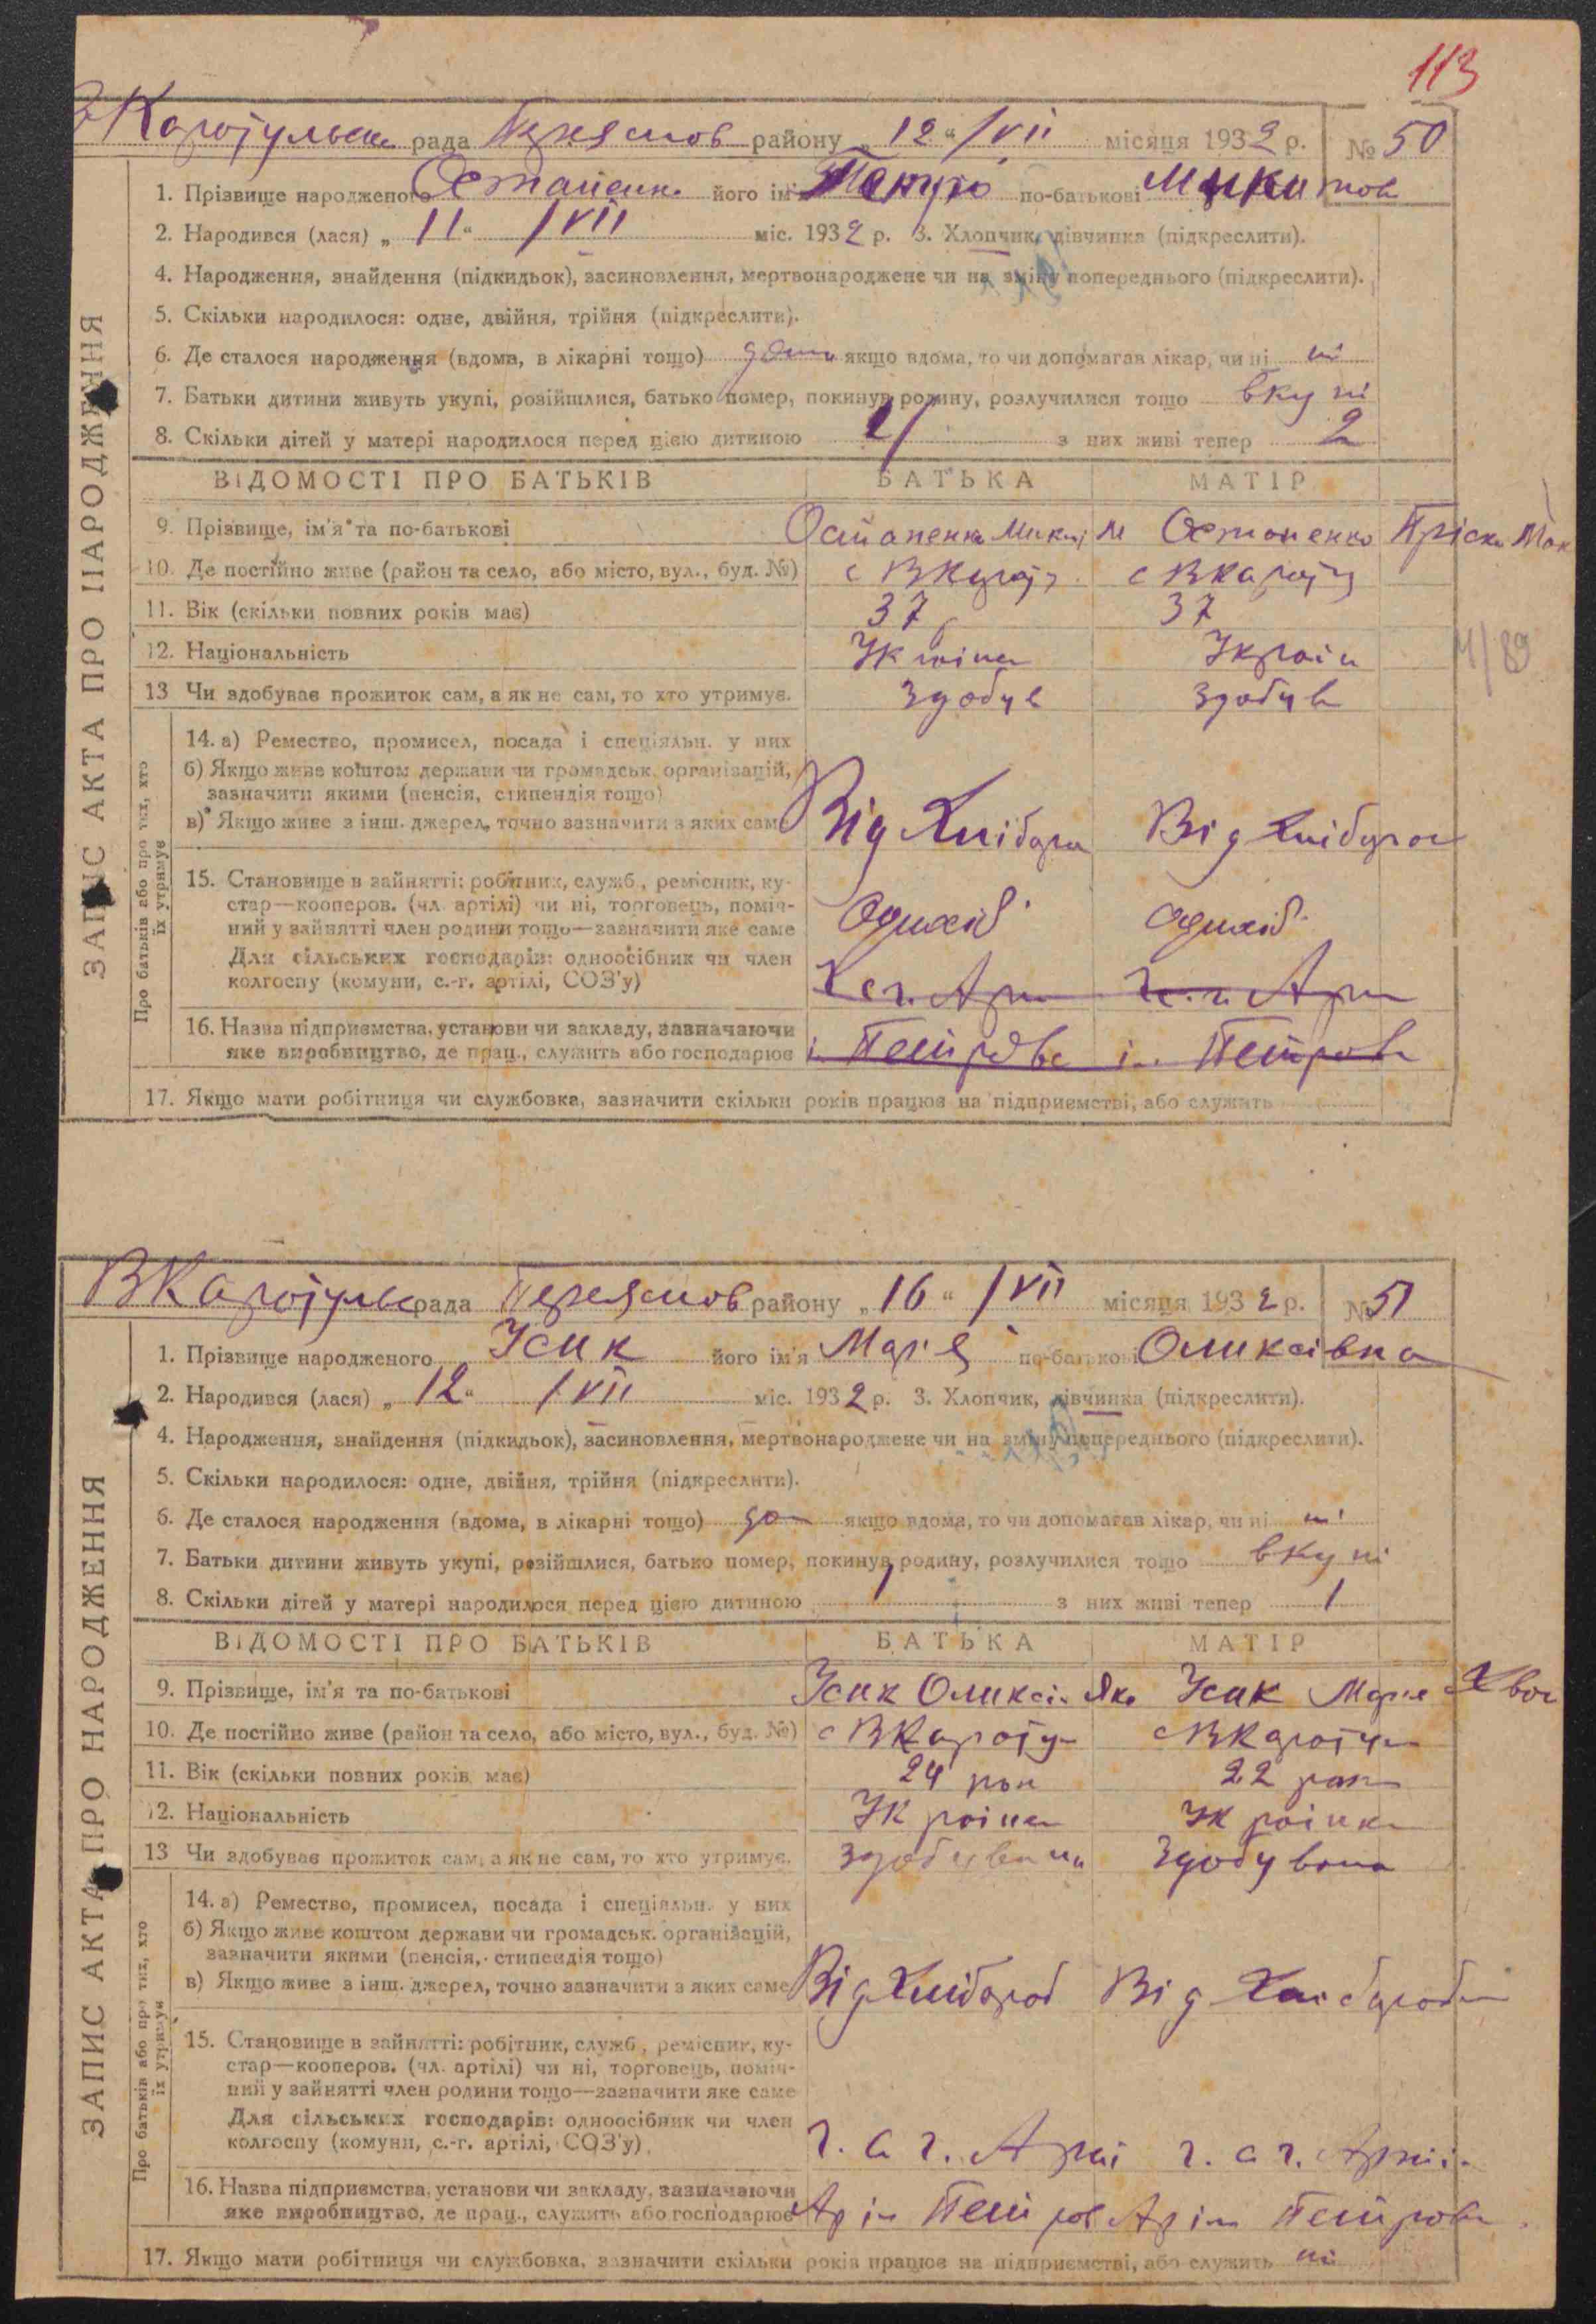 113
ЗАПИС АКТА ПРО НАРОДЖЕННЯ
рада Переяслов району „ 12 “ / VII місяця 1932 р. № 50
1. Прізвище народженого його ім'я по-батькові Микитов
2. Народився (лася) „ 11 “ / VII міс. 1932 р. 3. Хлопчик, дівчинка (підкреслити).
4. Народження, знайдення (підкидьок), засиновлення, мертвонароджене чи на зміну попереднього (підкреслити).
5. Скільки народилося: одне, двійня, трійня (підкреслити).
6. Де сталося народження (вдома, в лікарні тощо) дома якщо вдома, то чи допомагав лікар, чи ні ні
7. Батьки дитини живуть укупі, розійшлися, батько помер, покинув родину, розлучилися тощо вкупі
8. Скільки дітей у матері народилося перед цією дитиною з них живі тепер 2
ВІДОМОСТІ ПРО БАТЬКІВ БАТЬКА МАТІР
9. Прізвище, ім'я та по-батькові Остапенко М Остапенко Пріська Мак
10. Де постійно живе (район та село, або місто, вул., буд. №)
11. Вік (скільки повних років має) 37 37
12. Національність Україн
4/89
13 Чи здобуває прожиток сам, а як не сам, то хто утримує. Здобув Здобув
Про батьків або про тих, хто їх утримує
14. а) Ремество, промисел, посада і спеціяльн. у них
б) Якщо живе коштом держави чи громадськ. організацій,
зазначити якими (пенсія, стипендія тощо)
в) Якщо живе з інш. джерел, точно зазначити з яких саме Від Від
15. Становище в зайнятті: робітник, служб., ремісник, ку-
стар—кооперов. (чл. артілі) чи ні, торговець, поміч-
ний у зайнятті член родини тощо—зазначити яке саме
Для сільських господарів: одноосібник чи член
колгоспу (комуни, с.-г. артілі, СОЗ'у)
16. Назва підприємства, установи чи закладу, зазначаючи
яке виробництво, де прац., служить або господарює Петрова Петрова
17. Якщо мати робітниця чи службовка, зазначити скільки років працює на підприємстві, або служить
ЗАПИС АКТА ПРО НАРОДЖЕННЯ
рада Переяслов району „ 16 “ / VII місяця 1932 р. № 51
1. Прізвище народженого Усик його ім'я Марія по-батькові Оликсіівна
2. Народився (лася) „ 12 “ / VII міс. 1932 р. 3. Хлопчик, дівчинка (підкреслити).
4. Народження, знайдення (підкидьок), засиновлення, мертвонароджене чи на зміну попереднього (підкреслити).
5. Скільки народилося: одне, двійня, трійня (підкреслити).
6. Де сталося народження (вдома, в лікарні тощо) якщо вдома, то чи допомагав лікар, чи ні ні
7. Батьки дитини живуть укупі, розійшлися, батько помер, покинув родину, розлучилися тощо вкупі
8. Скільки дітей у матері народилося перед цією дитиною 1 з них живі тепер 1
ВІДОМОСТІ ПРО БАТЬКІВ БАТЬКА МАТІР
9. Прізвище, ім'я та по-батькові Усик Оликсі Яко Усик Марія
10. Де постійно живе (район та село, або місто, вул., буд. №)
11. Вік (скільки повних років має) 24 рок 22 рок
12. Національність
13 Чи здобуває прожиток сам, а як не сам, то хто утримує.
Про батьків або про тих, хто їх утримує
14. а) Ремество, промисел, посада і спеціяльн. у них
б) Якщо живе коштом держави чи громадськ. організацій,
зазначити якими (пенсія, стипендія тощо)
в) Якщо живе з інш. джерел, точно зазначити з яких саме Від Хлібороб Від
15. Становище в зайнятті: робітник, служб., ремісник, ку-
стар—кооперов. (чл. артілі) чи ні, торговець, поміч-
ний у зайнятті член родини тощо—зазначити яке саме
Для сільських господарів: одноосібник чи член
колгоспу (комуни, с.-г. артілі, СОЗ'у)
16. Назва підприємства, установи чи закладу, зазначаючи
яке виробництво, де прац., служить або господарює Ар ім Петров Ар ім Петрова
17. Якщо мати робітниця чи службовка, зазначити скільки років працює на підприємстві, або служить ні